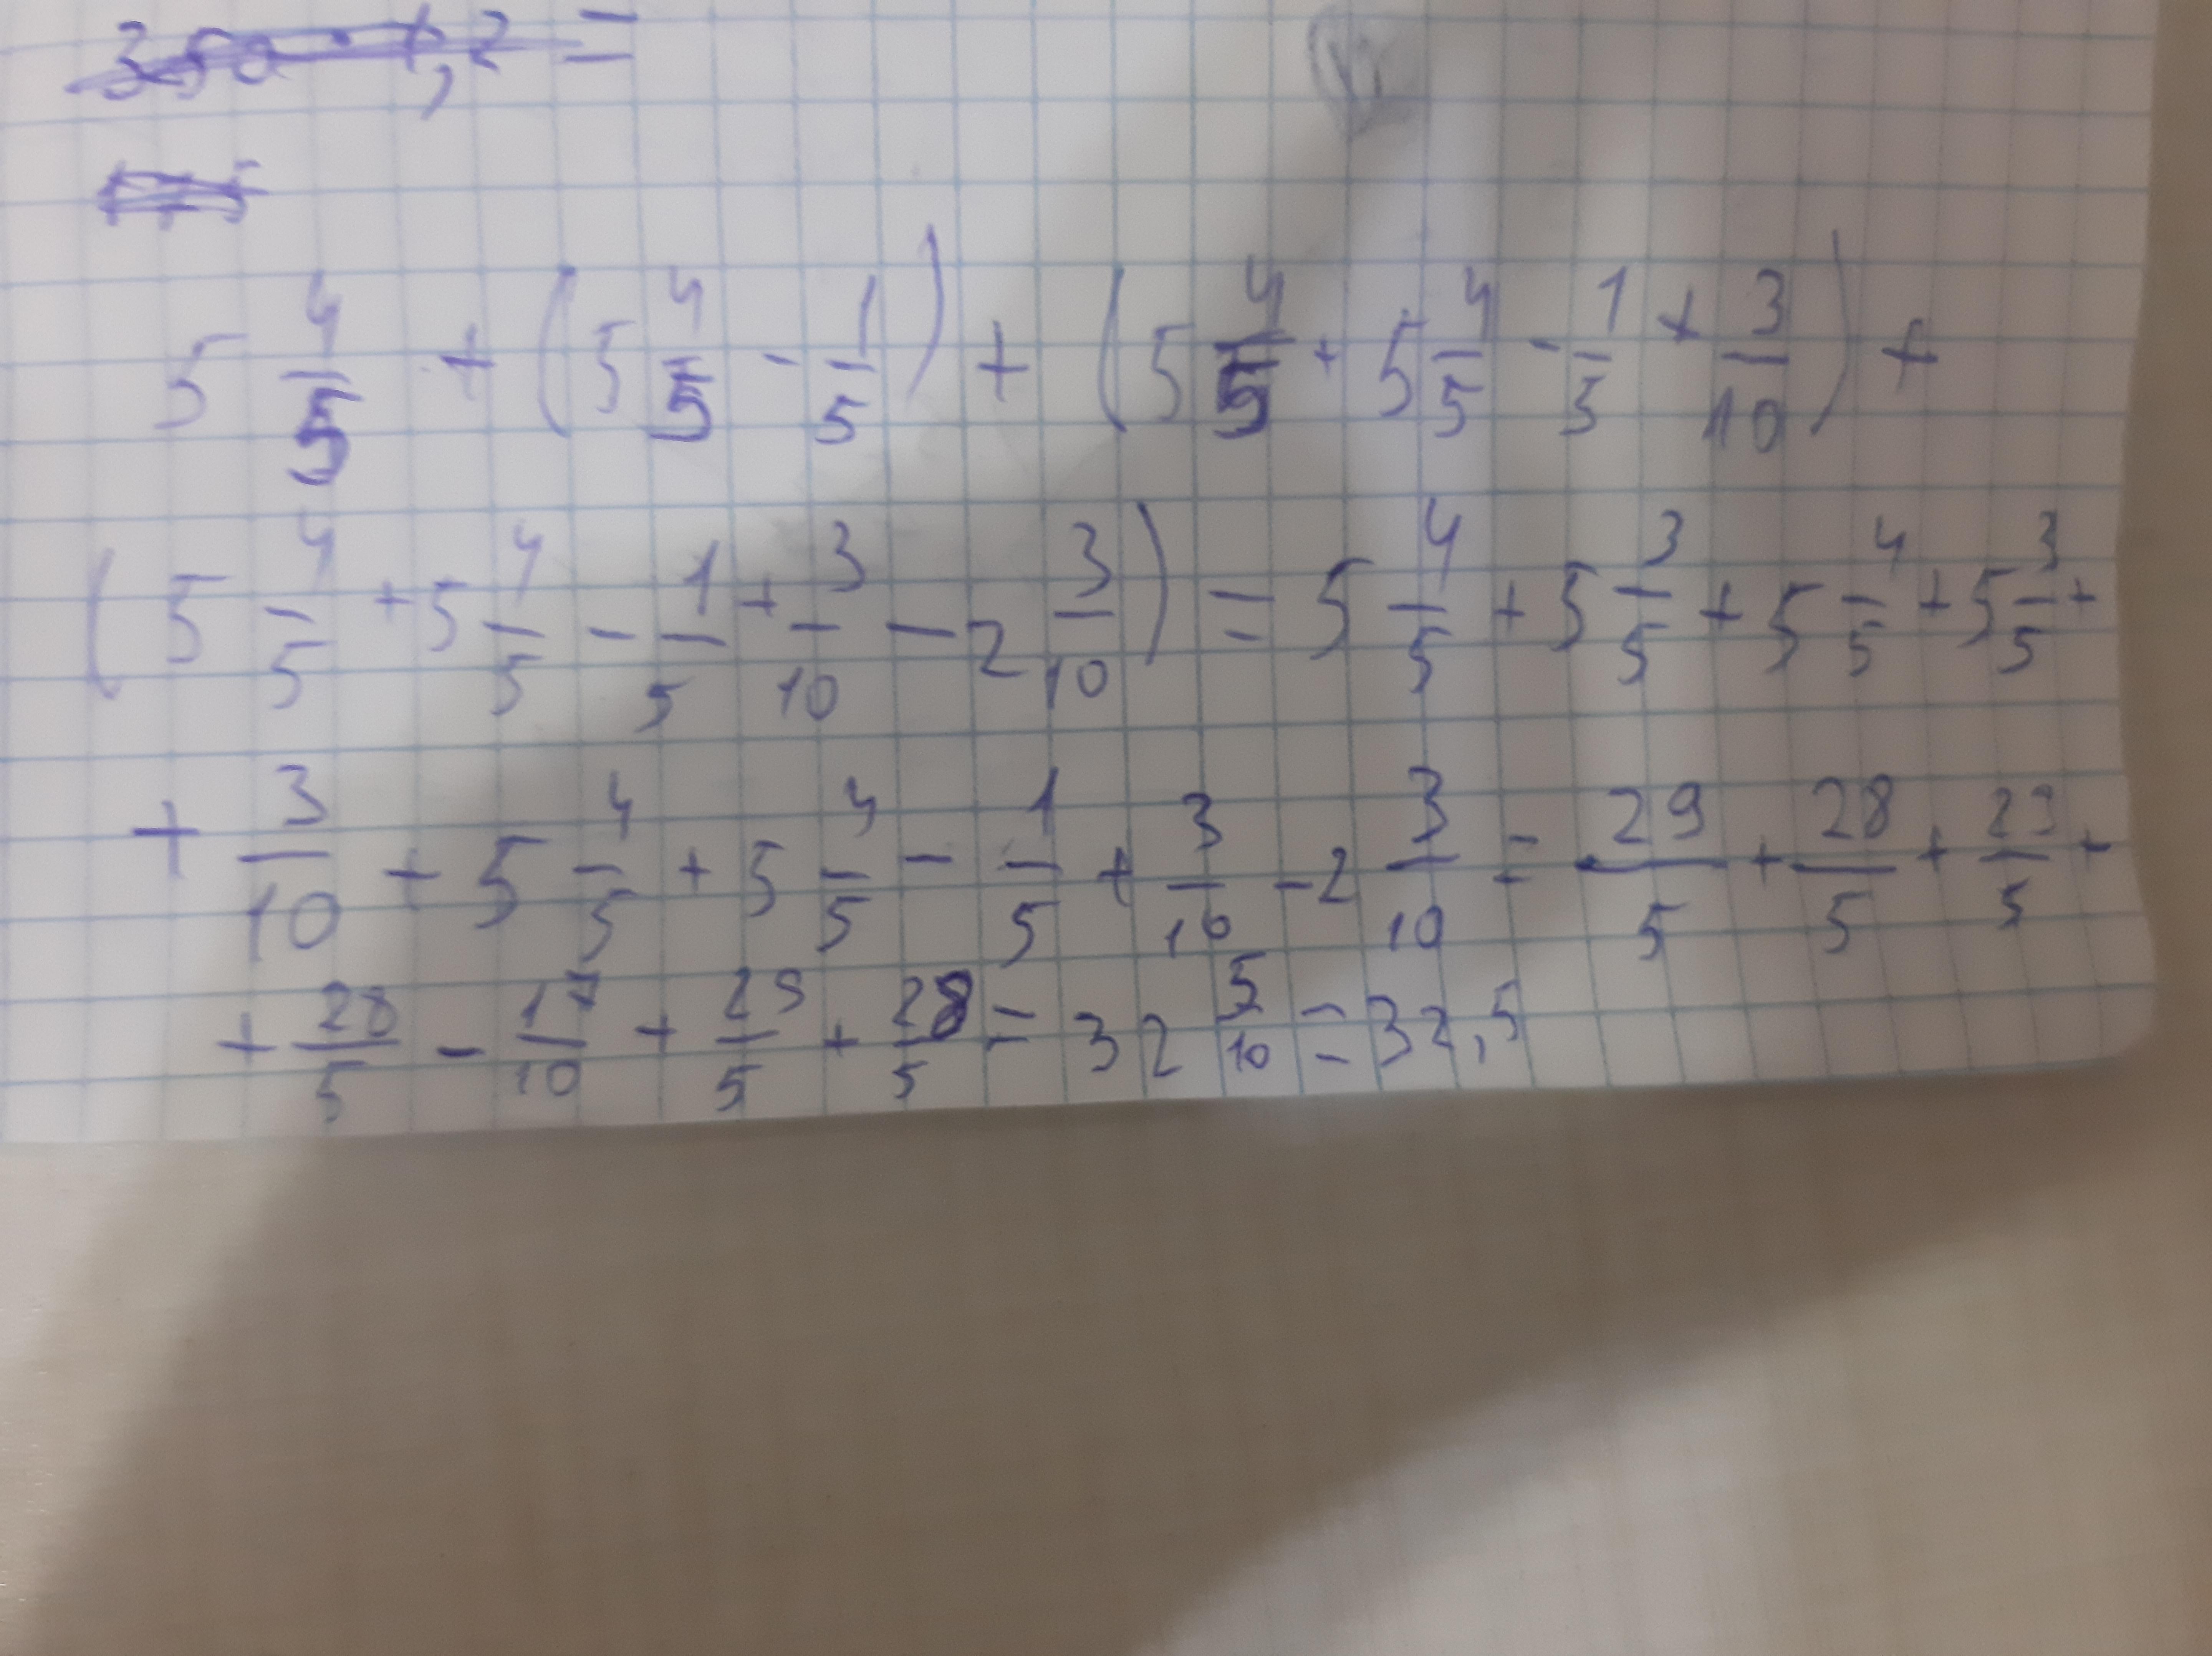 350 · 1,2 =
175
5 4/5 + (5 4/5 - 1/5) + (5 4/5 + 5 4/5 - 1/5 + 3/10) +
(5 4/5 + 5 4/5 - 1/5 + 3/10 - 2 3/10) = 5 4/5 + 5 3/5 + 5 4/5 + 5 3/5 +
+ 3/10 + 5 4/5 + 5 4/5 - 1/5 + 3/10 - 2 3/10 = 29/5 + 28/5 + 29/5 +
+ 28/5 - 17/10 + 29/5 + 28/5 = 32 5/10 = 32,5